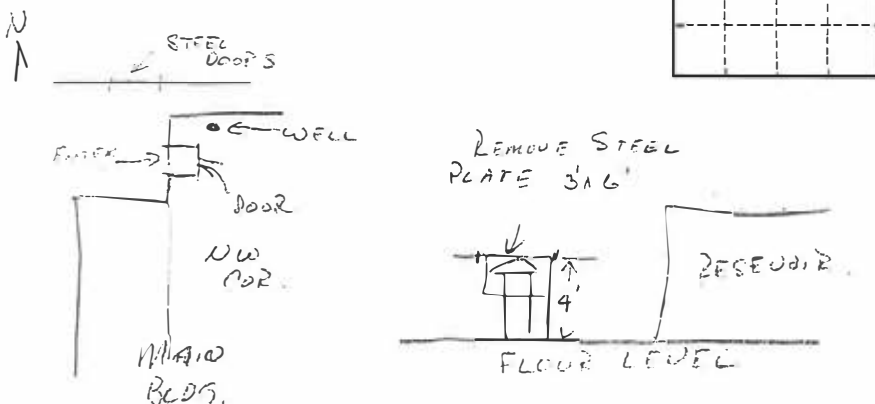 N
STEEL
DOORS
WELL
ENTER
DOOR
NW
COR.
MAIN
BLDG.
REMOVE STEEL
PLATE 3'x6'
4'
RESEVOIR
FLOOR LEVEL